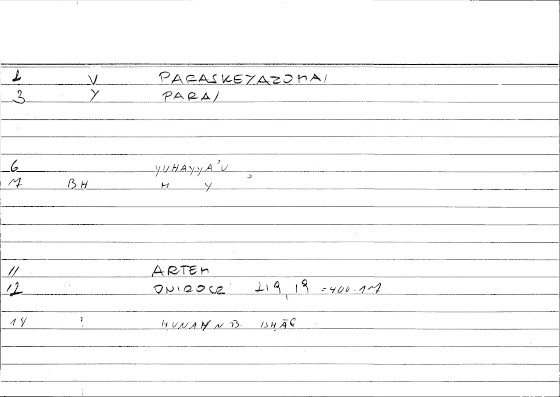 1 V PARASKEYAZOMAI
3 Y PARA/
6 YUHAYYA'U
M BH H Y
11 ARTEM
12 ONIROCR 219, 19 = 400.1M
14 ? HUNAYN B. ISHĀC